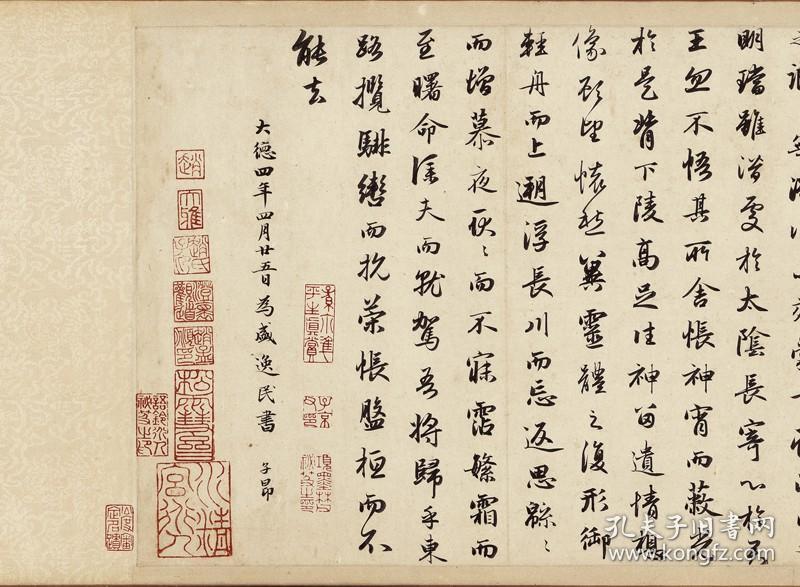 明璫雖潛處於太陰長寄心於君
王忽不悟其所舍悵神宵而蔽光
於是背下陵高足往神留遺情想
像顧望懷愁冀靈體之復形御
輕舟而上遡浮長川而忘返思緜〻
而增慕夜耿〻而不寐霑繁霜而
至曙命僕夫而就駕吾將歸乎東
路攬騑轡而抗策悵盤桓而不
能去
大德四年四月廿五日為盛逸民書 子昂
趙
大雅
子京
項墨林
孔夫子旧书网
www.kongfz.com